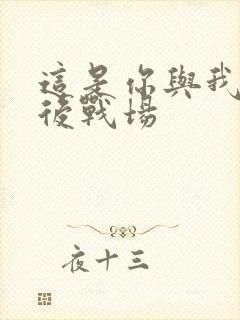 這是你與我
後戰場
夜十三